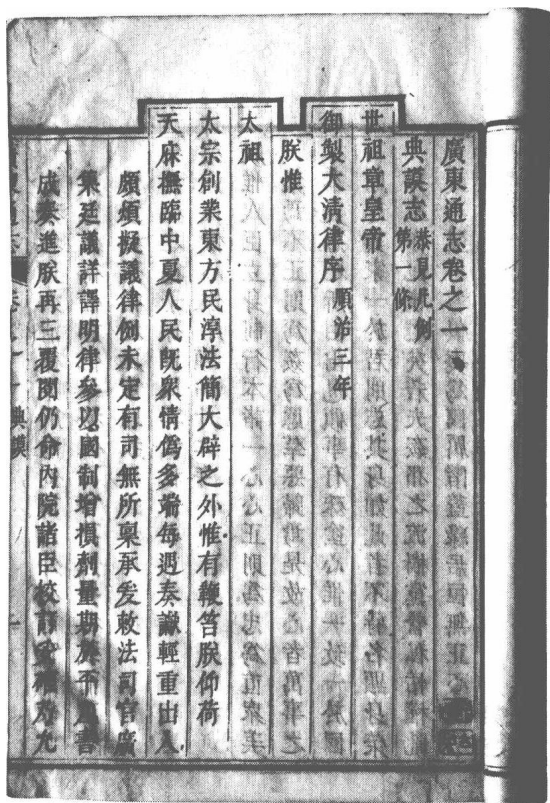 廣東通志卷之一
典謨志恭見凡例第一條
世祖章皇帝
御製大清律序 順治三年
朕惟
太祖
太宗創業東方民淳法簡大辟之外惟有鞭笞朕仰荷
天庥撫臨中夏人民既衆情僞多端每遇奏讞輕重出入
頗煩擬議律例未定有司無所禀承爰敕法司官廣
集廷議詳譯明律參以國制增損劑量期於平允書
成奏進朕再三覆閱仍命內院諸臣校訂妥確乃允
典謨